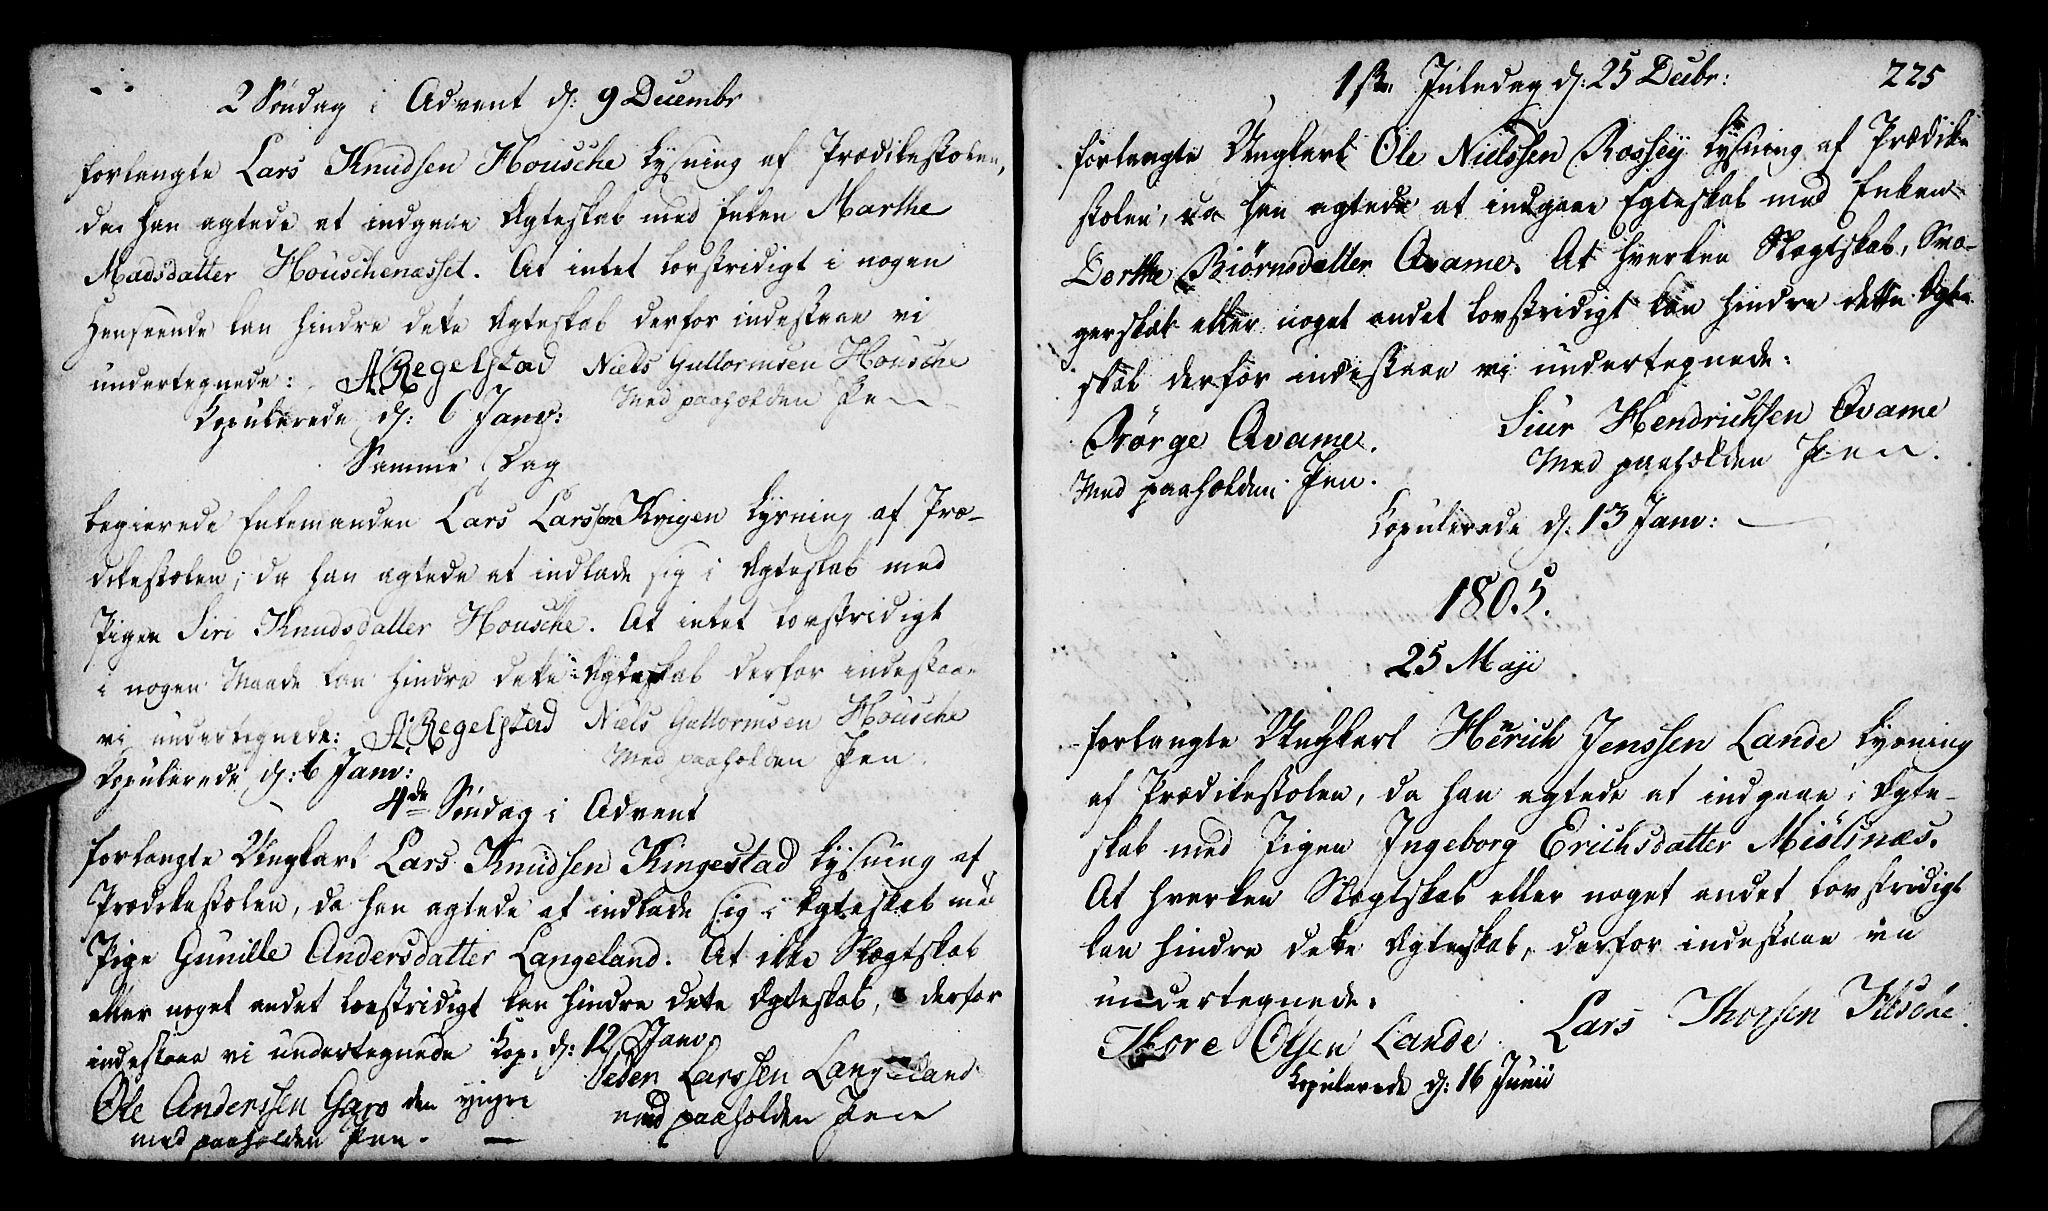 2 Søndag i Advent d: 9 Decembr
forlangte Lars Knudsen Housche Lysning af Prædikestolen,
da han agtede at indgaae Ægteskab med Enken Marthe
Madsdatter Houschenæsset. At intet lovstridigt i nogen
Henseende kan hindre dete Ægteskab derfor indestaae vi
undertegnede: ARegelstad Niels Guttormsen Housche
Med paaholden Pen
Kopulerede d: 6 Janv:
Samme Dag
begierede Enkemanden Lars Larssen Kvigen Lysning af Præ-
dikestolen, da han agtede at indlade sig i Ægteskab med
Pigen Siri Knudsdatter Housche. At intet lovstridigt
i nogen Maade kan hindre dete Ægteskab derfor indestaae
vi undertegnede: ARegelstad Niels Guttormsen Housche
Med paaholden Pen.
Kopulerede d: 6 Janv:
4de Søndag i Advent
forlangte Ungkarl Lars Knudsen Kingestad Lysning af
Prædikestolen, da han agtede at indlade sig i Ægteskab med
Pige Gunille Andersdatter Langeland. At ikke Slægtskab
eller noget andet lovstridigt kan hindre dete Ægteskab, derfor
indestaae vi undertegnede Kop. d: 12 Janv.
Ole Anderssen Garo den yngre Peder Larssen Langeland
med paaholden Pen. med paaholden Pen
225
1ste Juledag d: 25 Decbr:
forlangte Ungkarl Ole Nielssen Rossey Lysning af Prædike
stolen, da han agtede at indgaae Egteskab med Enken
Dorthe Biørnsdatter Qvame. At hverken Slægtskab, Svo-
gerskab eller noget andet lovstridigt kan hindre dette Ægte
skab derfor indestaae vi undertegnede:
Børge Qvame. Siur Hendrichsen Qvame
Med paaholden Pen. Med paaholden Pen.
Kopulerede d: 13 Janv:
1805.
25 Maji
forlangte Ungkarl Henrich Jenssen Lande Lysning
af Prædikestolen, da han agtede at indgaae i Ægte-
skab med Pigen Ingeborg Erichsdatter Miölsnæs.
At hverken Slægtskab eller noget andet lovstridigt
kan hindre dete Ægteskab, derfor indestaae vi
undertegnede.
Thore Olsen Lande Lars Thorsen
Kopulerede d: 16 Junii